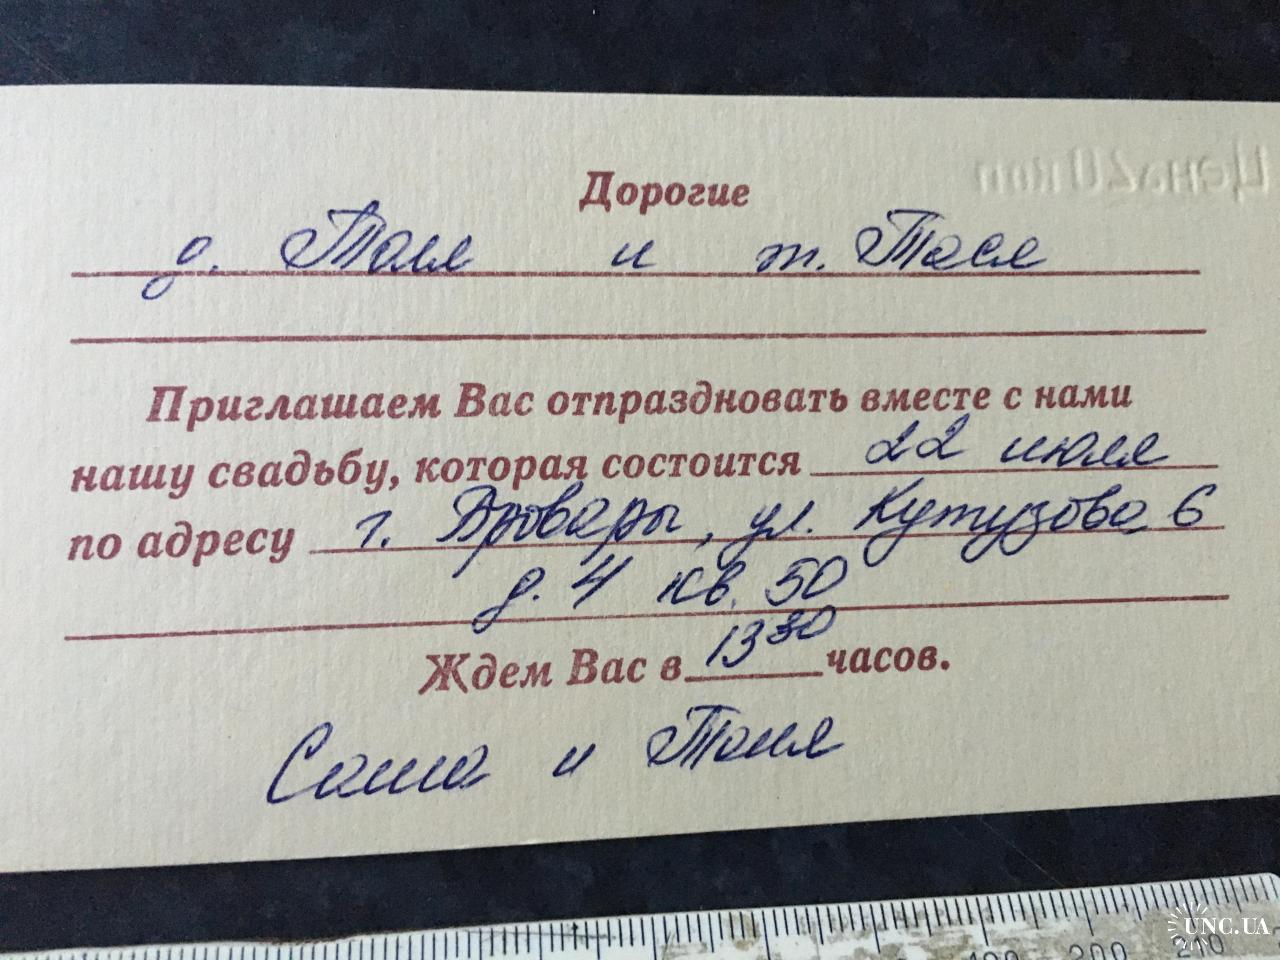 Цена 20 коп
Дорогие
д. Толя и т. Тася
Приглашаем Вас отпраздновать вместе с нами
нашу свадьбу, которая состоится 22 июля
по адресу г. Бровары, ул. Кутузова 6
д. 4 кв. 50
Ждем Вас в 13 30 часов.
Саша и Таня
190 200 210
UNC.UA